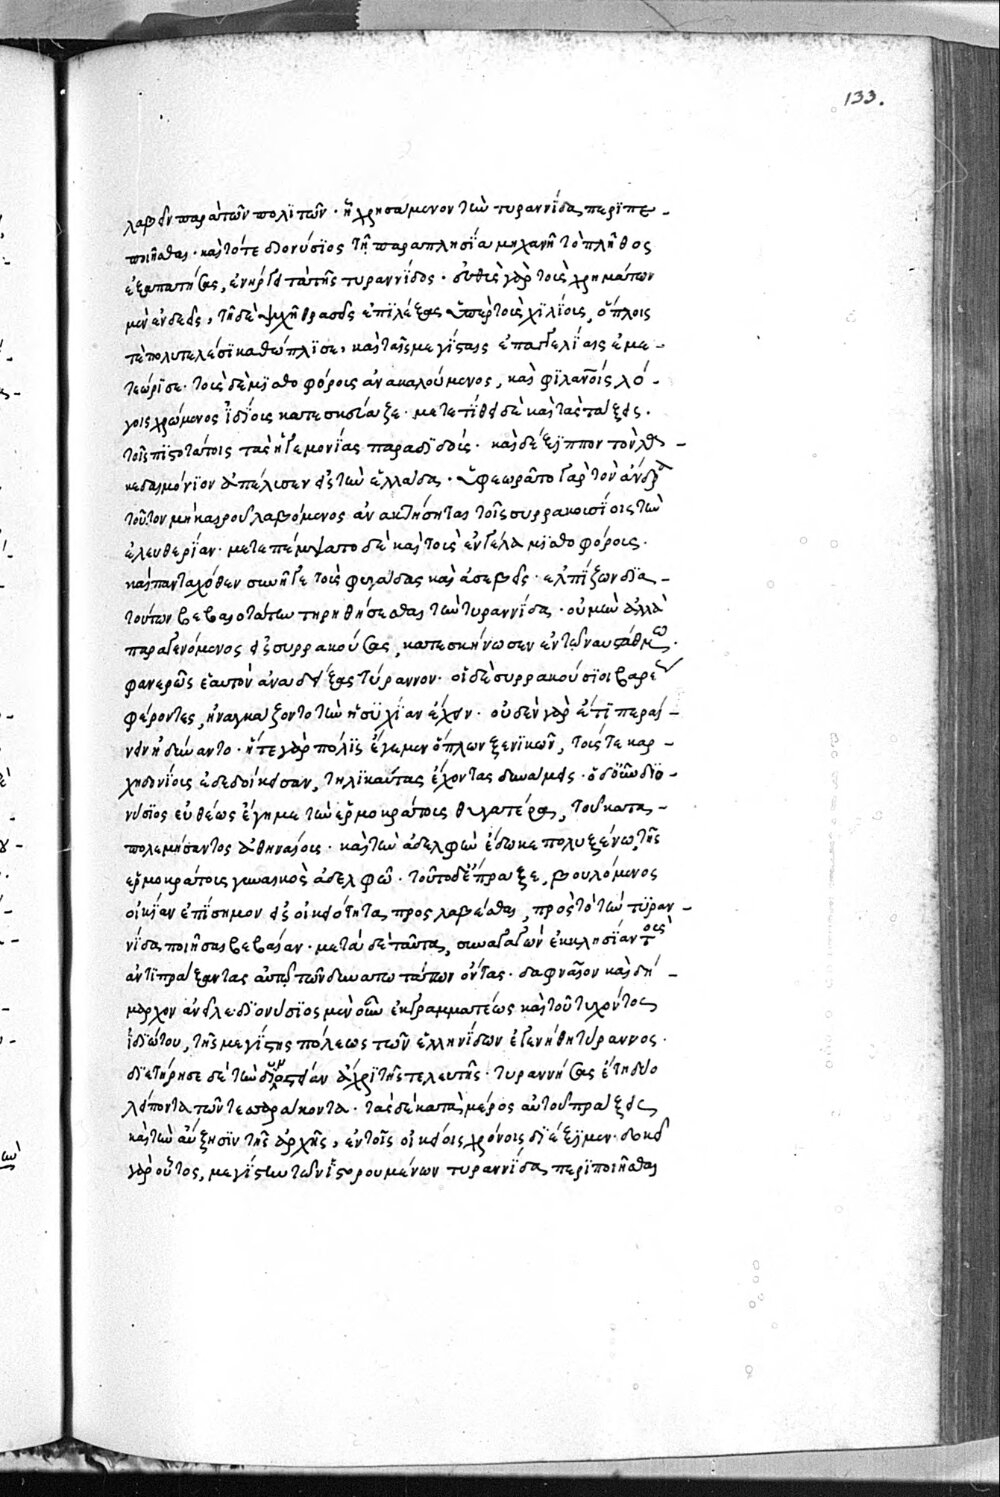 133.
λαβεῖν παρὰ τῶν πολϊτῶν · ᾗ χρησάμενον τὴν τυραννίδα περϊπε-
ποιῆσθαι · καὶ τότε διονύσϊος τῆ παραπλησία μηχανῆ τὸ πλῆθος
ἐξαπατήσας, ἐνήργει τὰ τῆς τυραννίδος · εὐθὺς γὰρ τοὺς χρημάτων
μὲν ἐνδεεῖς, τῆ δὲ ψυχῆ θρασεῖς ἐπϊλέξας ὑπὲρ τοὺς χϊλίους, ὅπλοις
τὲ πολυτελέσϊ καθώπλϊσε, καὶ ταῖς μεγίσταις ἐπαγγελίαις ἐμε-
τεώρϊσε · τοὺς δὲ μϊσθοφόρους ἀνακαλούμενος, καὶ φϊλανοις λό-
γοις χρώμενος ἰδίους κατεσκεύαζε · μετετίθει δὲ καὶ τὰς τάξεις ·
τοῖς πϊστοτάτοις τὰς ἡγεμονίας παραδϊδοὺς · καὶ δέξϊππον τὸν λα-
κεδαιμόνϊον ἀπέλυσεν εἰς τὴν ἑλλάδα · ὑφεωρᾶτο γὰρ τὸν ἄνδρα
τοῦτον μὴ καιροῦ λαβόμενος ἀνακτήσηται τοῖς συρρακουσϊοις τὴν
ἐλευθερίαν · μετεπέμψατο δὲ καὶ τοὺς ἐν γέλα μϊσθοφόρους ·
καὶ πανταχόθεν συνῆγε τοὺς φυγάδας καὶ ἀσεβεῖς · ἐλπίζων δϊα-
τούτων βεβαιοτάτην τηρηθήσεσθαι τὴν τυραννίδα · οὐ μὴν ἀλλὰ
παραγενόμενος εἰς συρρακούσας, κατεσκήνωσεν ἐν τῷ ναυστάθμω ·
φανερῶς ἑαυτὸν ἀναδείξας τύραννον · οἱ δὲ συρρακούσϊοι βαρέως
φέροντες, ἠναγκάζοντο τὴν ἡσϋχίαν ἔχειν · οὐδὲν γὰρ ἔτϊ περαί-
νειν ἠδύναντο · ἥ τε γὰρ πόλϊς ἔγεμεν ὅπλων ξενϊκῶν, τούς τε καρ-
χηδονίους ἐδεδοίκεισαν, τηλϊκαύτας ἔχοντας δυνάμεις · ὁ δ' οὖν δϊο-
νύσϊος εὐθέως ἔγημε τὴν ἑρμοκράτους θυγατέρα, τοῦ κατα-
πολεμήσαντος ἀθηναίους · καὶ τὴν ἀδελφὴν ἔδωκε πολυξένω, τῆς
ἑρμοκράτους γυναικὸς ἀδελφῶ · τοῦτο δ' ἔπραξε, βουλόμενος
οἰκίαν ἐπίσημον εἰς οἰκειότητα προσλαβέσθαι, πρὸς τὸ τὴν τϋραν-
νίδα ποιῆσαι βεβαίαν · μετὰ δὲ ταῦτα, συναγαγὼν ἐκκλησίαν τοὺς
ἀντϊπράξαντας αὐτῷ τῶν δυνατωτάτων ὄντας · δαφναῖον καὶ δή-
μαρχον ἀνεῖλε · δϊονύσϊος μὲν οὖν ἐκ γραμματέως καὶ τοῦ τυχόντος
ἰδϊώτου, τῆς μεγίστης πόλεως τῶν ἑλληνίδων ἐγενήθη τύραννος ·
δϊετήρησε δὲ τὴν δυναστείαν ἄχρϊ τῆς τελευτῆς · τυραννήσας ἔτη δύο
λείποντα τῶν τεσσαράκοντα · τὰς δὲ κατὰ μέρος αὐτοῦ πράξεις
καὶ τὴν αὔξησϊν τῆς ἀρχῆς, ἐν τοῖς οἰκείοις χρόνοις δϊέξϊμεν · δοκεῖ
γὰρ οὗτος, μεγίστην τῶν ἱστορουμένων τυραννίδα περϊποιῆσθαι